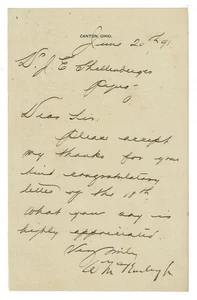 CANTON, OHIO.
June 20th 91
Dr. J. E. Shellenberger
Dear Sir.
Please accept
my thanks for your
kind congratulatory
letter of the 18th
What you say is
highly appreciated
Very truly
yrs
W McKinley Jr